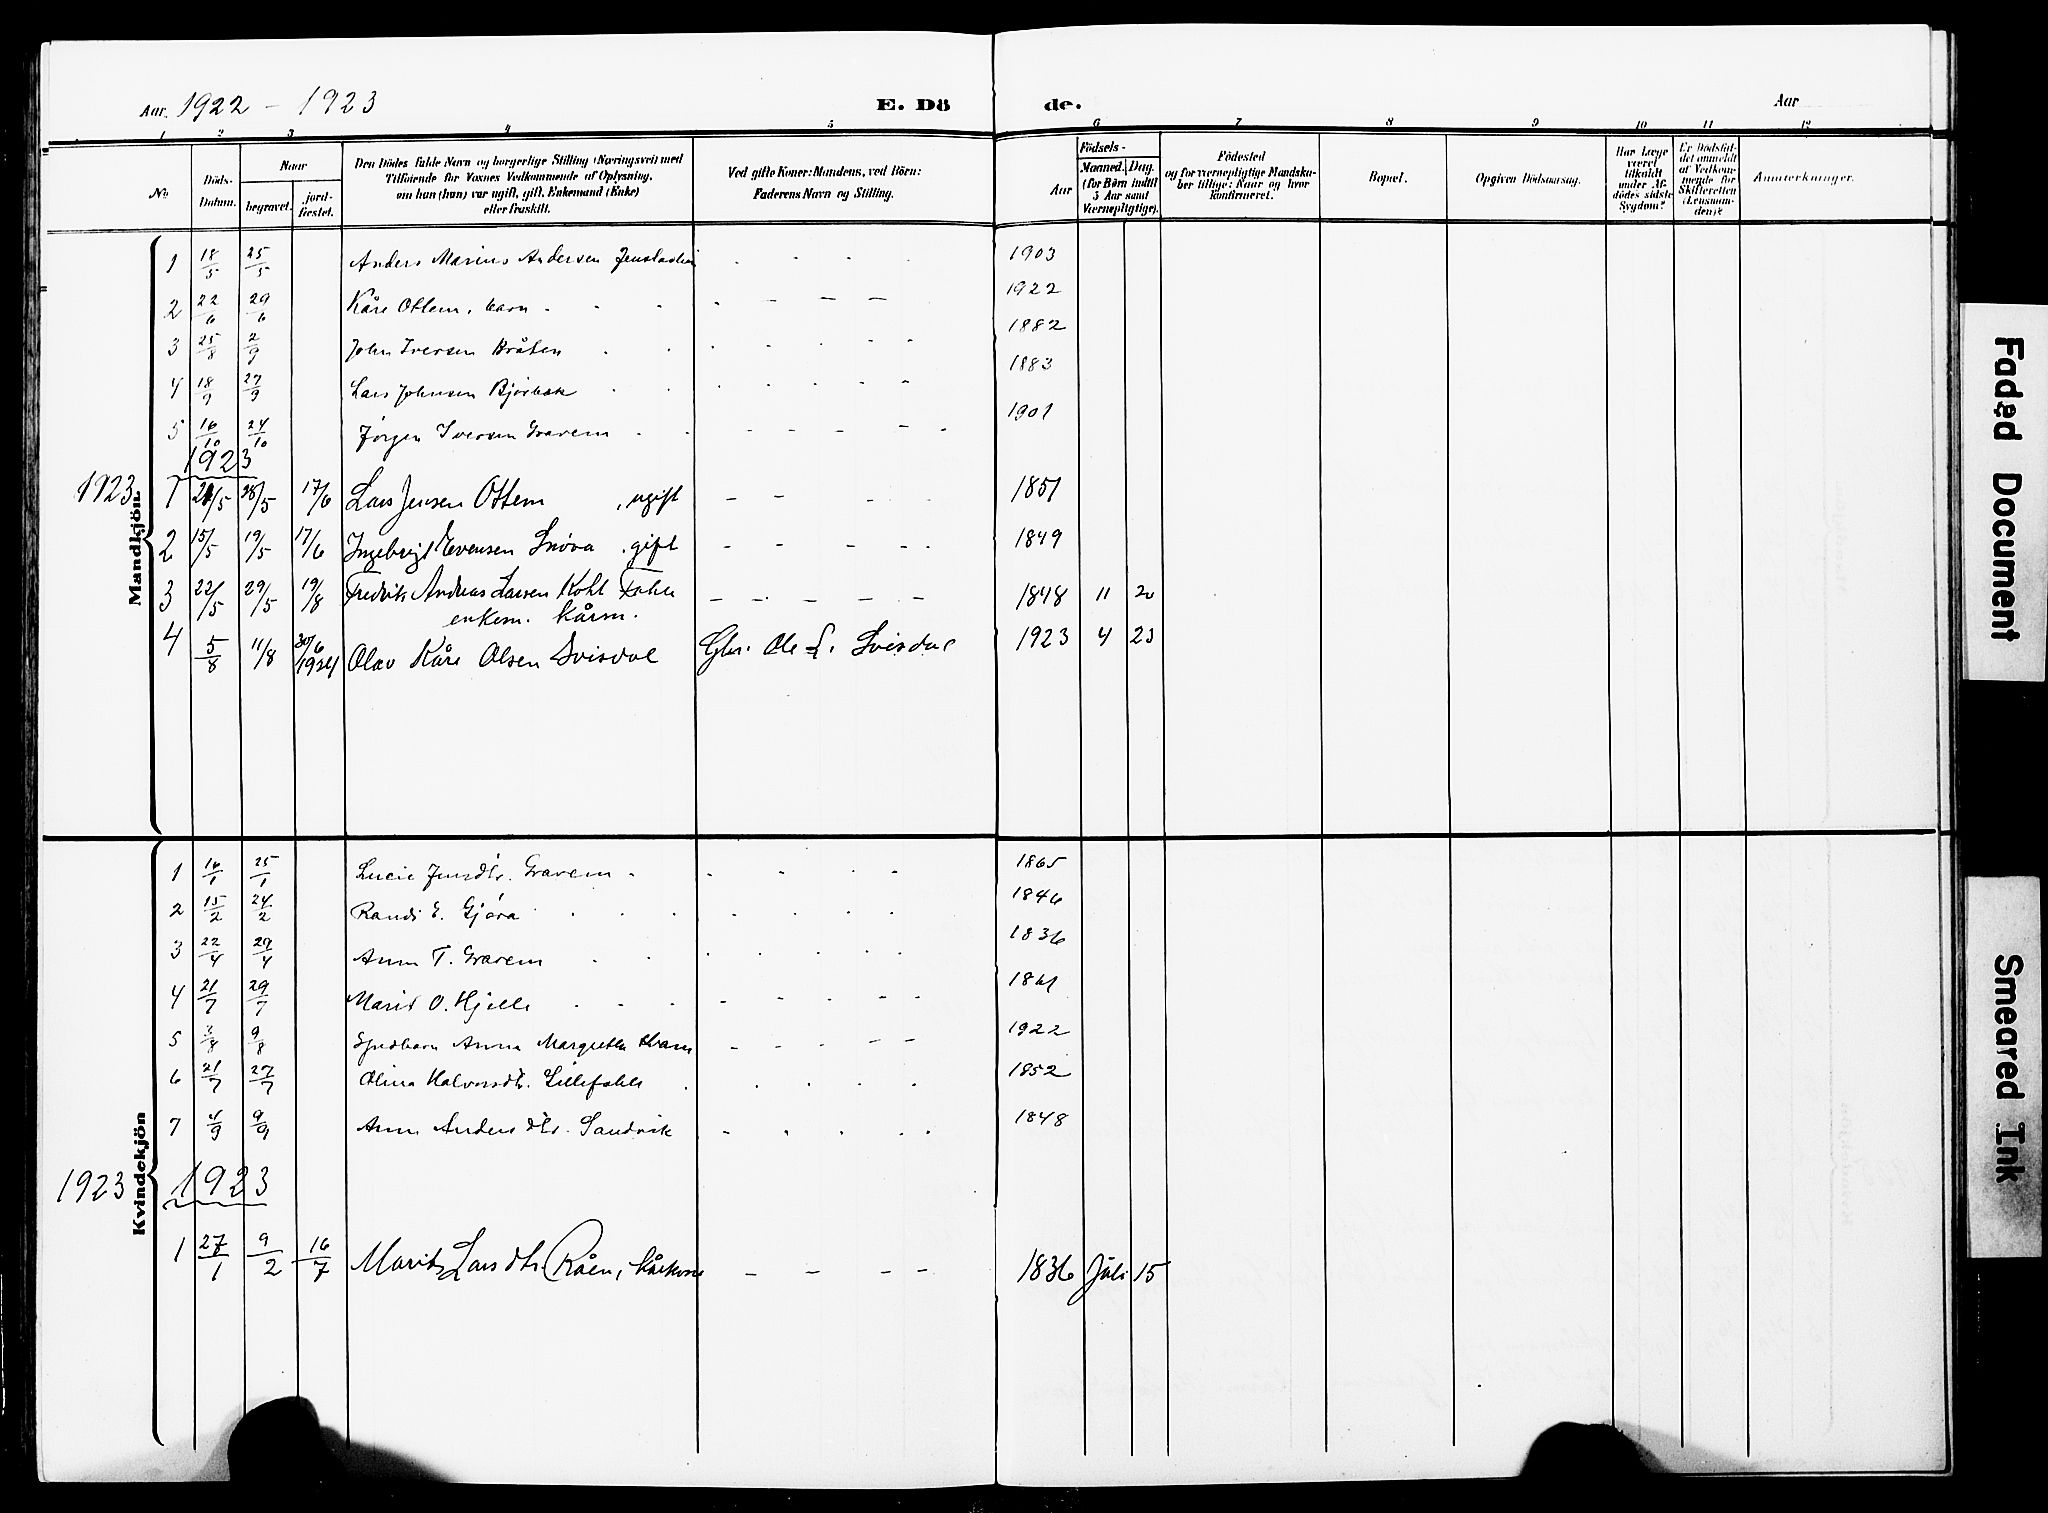 Aar. 1922 - 1923 E. Dö de. Aar
1 2 3 4 5 6 7 8 9 10 11 12
No
Döds-Datum.
Naar
begravet.
jord-fæstet.
Den Dödes fulde Navn og borgerlige Stilling (Næringsvei) med
Tilföiende for Voxnes Vedkommende af Oplysning,
om han (hun) var ugift, gift, Enkemand (Enke)
eller fraskilt.
Ved gifte Koner: Mandens, ved Börn:
Faderens Navn og Stilling.
Födsels-
Aar
Maaned. Dag.
(for Børn indtil
3 Aar samt
Værnepligtige).
Födested
og for værnepligtige Mandsku-
ber tillige: Naar og hvor
konfirmeret.
Bopæl.
Opgiven Dödsaarsag.
Har Læge
været
tilkaldt
under Af-
dödes sidste
Sygdom?
Er Dödsfal-
det anmeldt
af Vedkom-
mende for
Skifteretten
(Lensman-
den)?
Anmærkninger.
Mandkjön
1 18/5 25/5 Anders Marius Andersen 1903
2 22/6 29/6 Kåre Ottem, barn 1922
3 25/8 2/9 John Iversen Bråten 1882
4 18/9 27/9 Lars Johnsen Bjørbæk 1883
5 16/10 24/10 Jørgen Iversen Gravem 1901
1923
1923
1 21/5 28/5 17/6 Lars Jensen Ottem, ugift 1851
2 15/5 19/5 17/6 Ingebrigt Evensen Snøva, gift 1849
3 22/5 29/5 19/8 Fredrik Andreas Larsen Kohl Fahle 1848 11 20
enkem. kårm.
4 5/8 11/8 30/6 1924 Olav Kåre Olsen Svisdal Gbr. Ole L. Svisdal 1923 4 23
Kvindekjön
1 16/1 25/1 Lucie Jensdtr. Gravem 1865
2 15/2 24/2 Randi E. Gjøra 1846
3 22/4 29/4 Anne T. Gravem 1836
4 21/7 29/7 Marit O. Hjelle 1861
5 3/8 9/8 Anna Margrethe 1922
6 21/7 27/7 Olina Halvorsdtr. Lillefahle 1852
7 4/9 9/9 Anne Andersdtr. Sandvik 1848
1923
1923
1 27/1 9/2 16/7 Marit Larsdtr. Råen, kårkone 1836 Juli 15
Faded Document
Smeared Ink